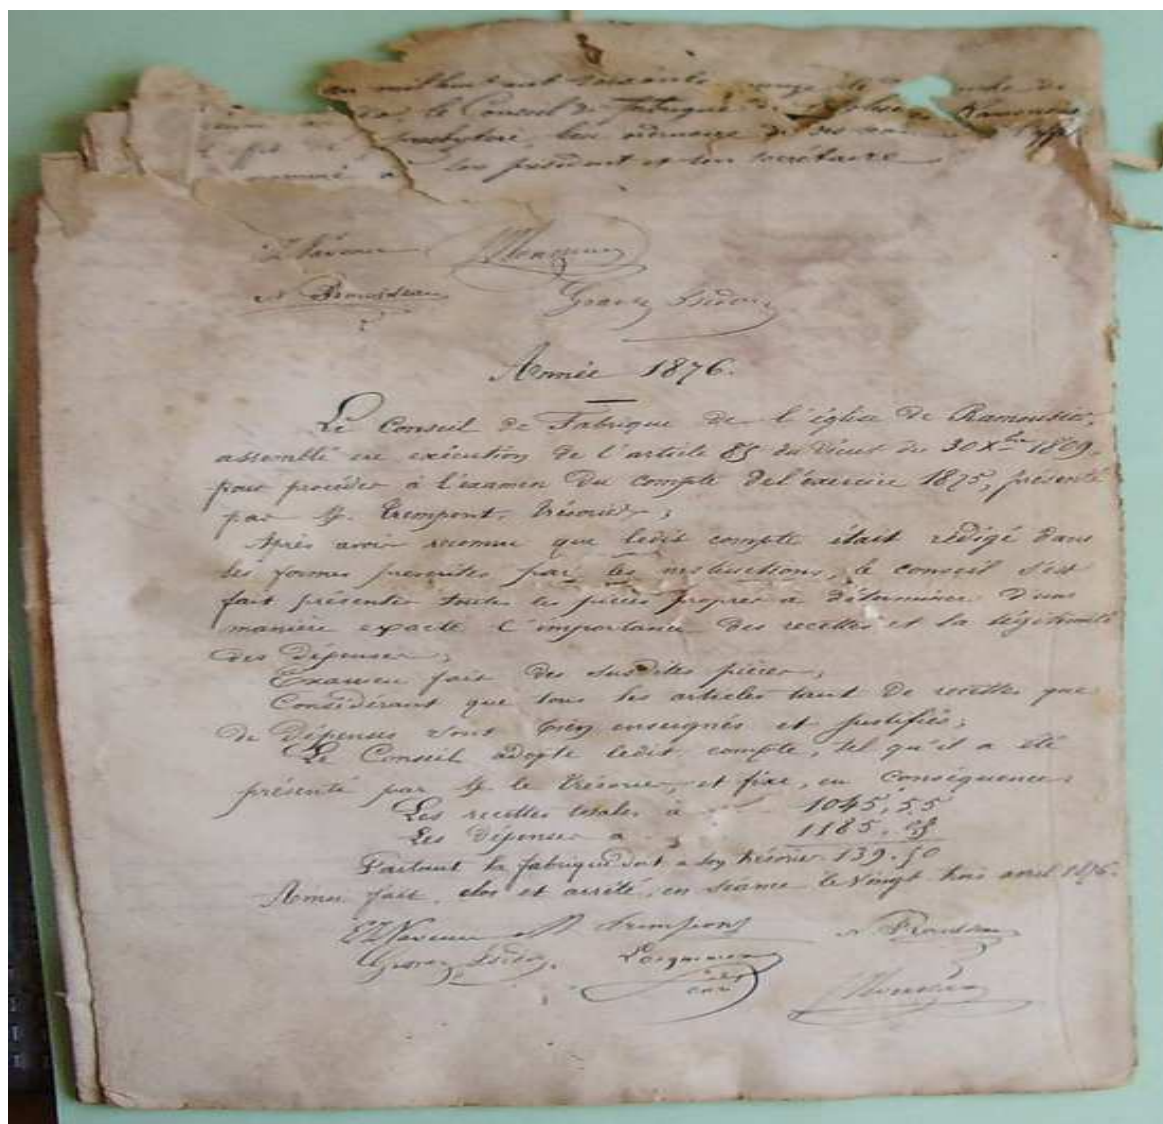 mil huit cent soixante
le Conseil de Fabrique de l'église de Ramousies
presbytère, lieu ordinaire de ses
nommé son président et son secrétaire
Année 1876.
Le Conseil de Fabrique de l'église de Ramousies,
assemblé en exécution de l'article 85 du décret du 30 Xbre 1809,
pour procéder à l'examen du compte de l'exercice 1875, présenté
par M. Trempont, trésorier;
Après avoir reconnu que ledit compte était rédigé dans
les formes prescrites par les instructions, le conseil s'est
fait présenter toutes les pièces propres à déterminer d'une
manière exacte l'importance des recettes et la légitimité
des dépenses;
Examen fait des susdites pièces;
Considérant que tous les articles tant de recettes que
de dépenses sont bien enseignés et justifiés;
Le Conseil adopte ledit compte, tel qu'il a été
présenté par M. le trésorier, et fixe, en conséquence:
Les recettes totales à 1045,55
Les dépenses à 1185.
Partant la fabrique doit à son trésorier 139.50
fait, clos et arrêté, en séance le vingt trois avril 1876.